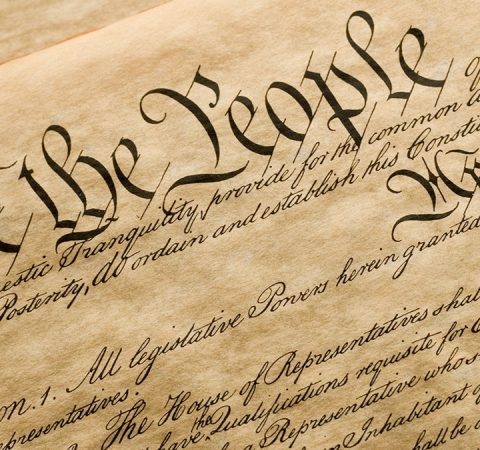 the People
estic Tranquility, provide for the common
Posterity, do ordain and establish this Consti
All legislative Powers herein granted
on. 1.
epresentatives.
The House of Representatives shal
have the Qualifications requisite for
a Representative who s
Inhabitant of
shall be